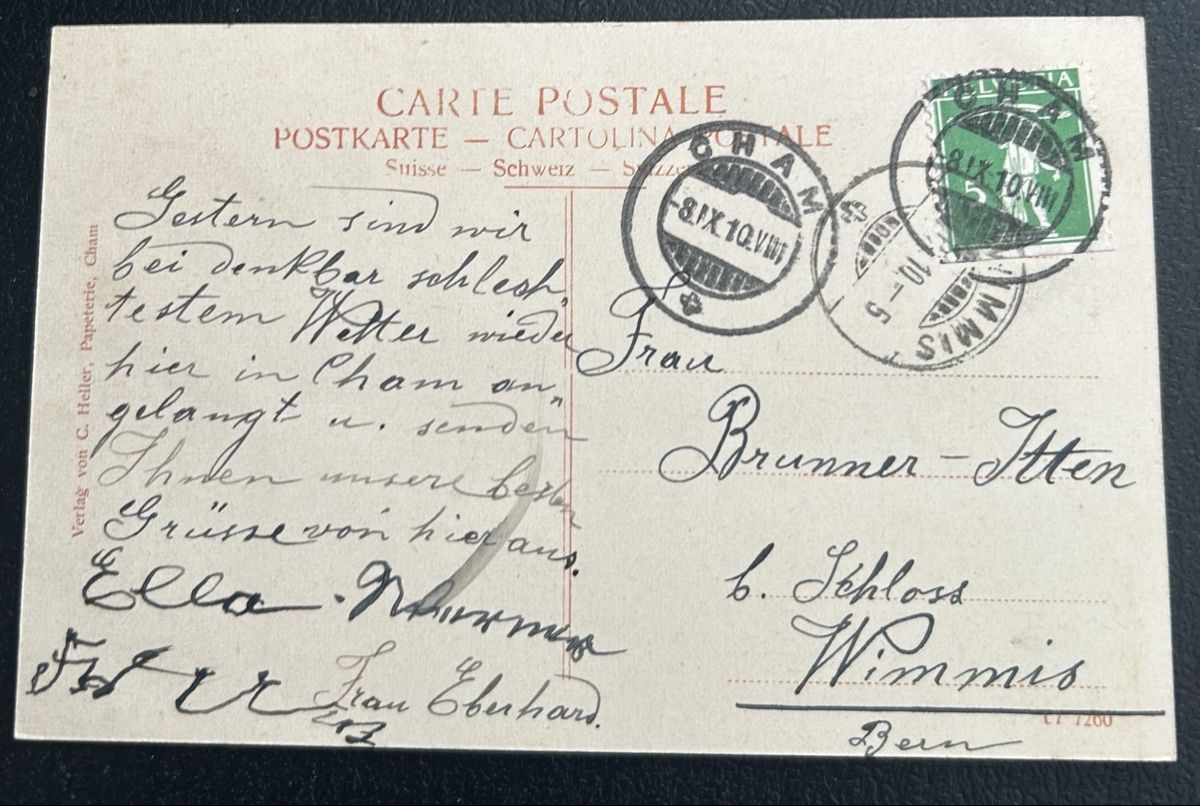 CARTE POSTALE
POSTKARTE — CARTOLINA POSTALE
Suisse — Schweiz —
Verlag von C. Heller, Papeterie, Cham
Gestern sind wir
bei denkbar schlech„
testem Wetter wieder
hier in Cham an„
gelangt u. senden
Ihnen unsere besten
Grüsse von hier aus.
Ella
Frau Eberhard.
HELVETIA
5
CHAM
-8.IX.10.VIII
CHAM
-8.IX.10.VIII
WIMMIS
10.-5
Frau
Brunner-Itten
b. Schloss
Wimmis
Bern
7260